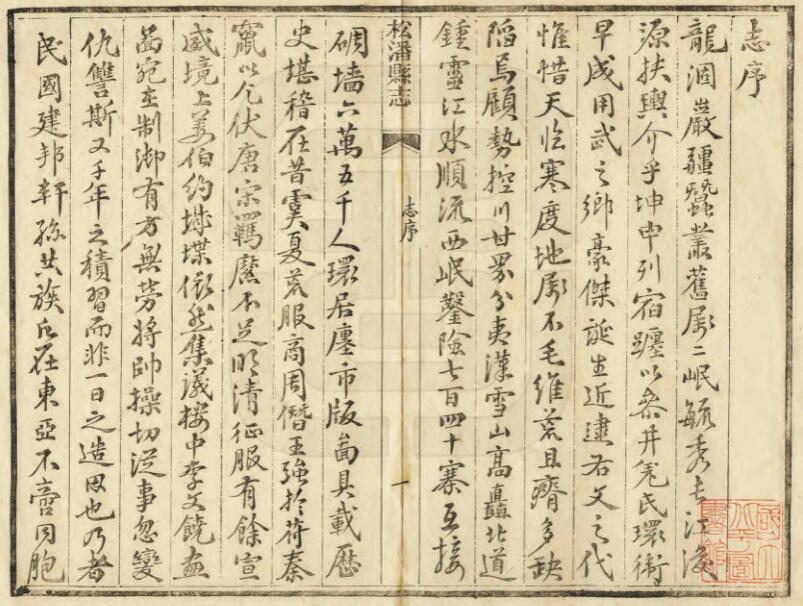 志序
龍涸嚴疆蠶叢舊屬二岷毓秀長江濬
源扶輿介乎坤申列宿躔以參井羌民環衛
早成用武之鄉豪傑誕生近逮右文之代
惟惜天临寒度地屬不毛維荒且瘠多缺
陷焉顧勢控川甘界分夷漢雪山高矗北道
鍾靈江水順流西岷鑿險七百四十寨互接
松潘縣志
志序
一
碉墙六萬五千人環居廛市版啚具載歷
史堪稽在昔虞夏荒服商周僭王強於苻秦
竄以乞伏唐宋羈縻不足明清征服有餘宣
威境上姜伯約城堞依然集議楼中李文饒畫
啚宛在制御有方無勞將帥操切從事忽變
仇讐斯又千年之積習而非一日之造因也乃者
民國建邦軒孫共族氐在東亞不啻同胞